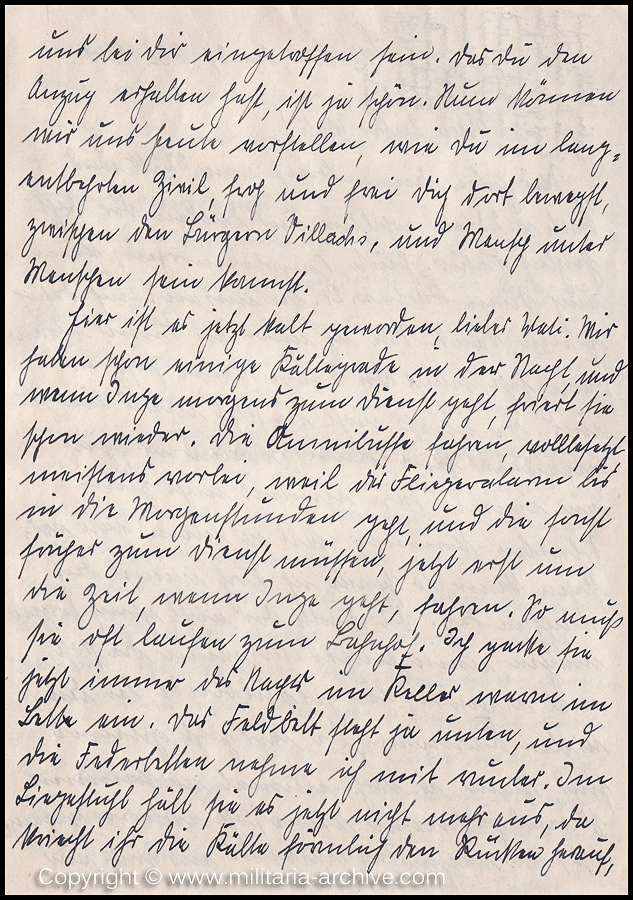 uns bei dir eingetroffen sein. Das du den
Anzug erhalten hast, ist ja schön. Nun können
wir uns heute vorstellen, wie du im lang-
entbehrten Zivil, froh und frei dich dort bewegst,
zwischen den Bürgern Villachs, und Mensch unter
Menschen sein kannst.
Hier ist es jetzt kalt geworden, lieber Vati. Wir
haben schon einige Kältegrade in der Nacht, und
wenn Inge morgens zum Dienst geht, friert sie
schon wieder. Die Omnibusse fahren, vollbesetzt
meistens vorbei, weil der Fliegeralarm bis
in die Morgenstunden geht, und die sonst
früher zum Dienst müssen, jetzt erst um
die Zeit, wenn Inge geht, fahren. So muß
sie oft laufen zum Bahnhof. Ich packe sie
jetzt immer des Nachts im Keller warm im
Bette ein. Das Feldbett steht ja unten, und
die Federbetten nehme ich mit runter. Im
Liegestuhl hält sie es jetzt nicht mehr aus, da
kriecht ihr die Kälte förmlich den Rücken herauf,
Copyright © www.militaria-archive.com